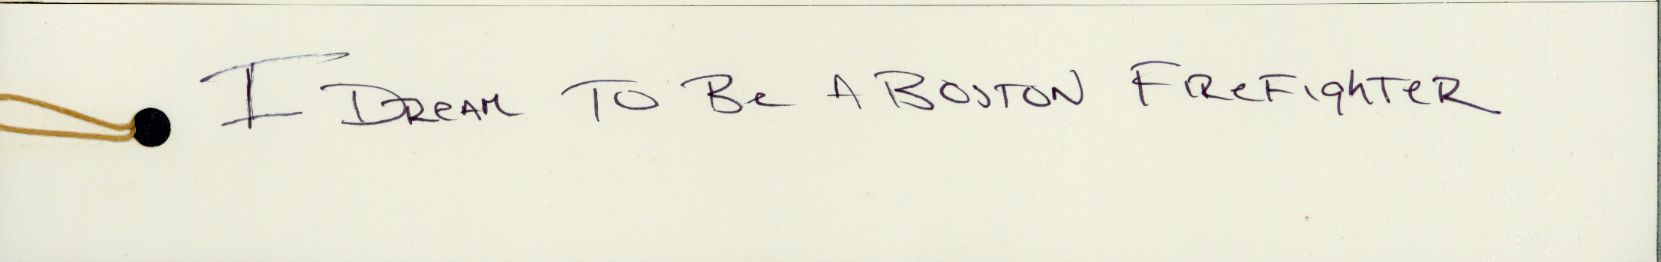 I DReAM TO Be A BOSTON FIReFIghTeR